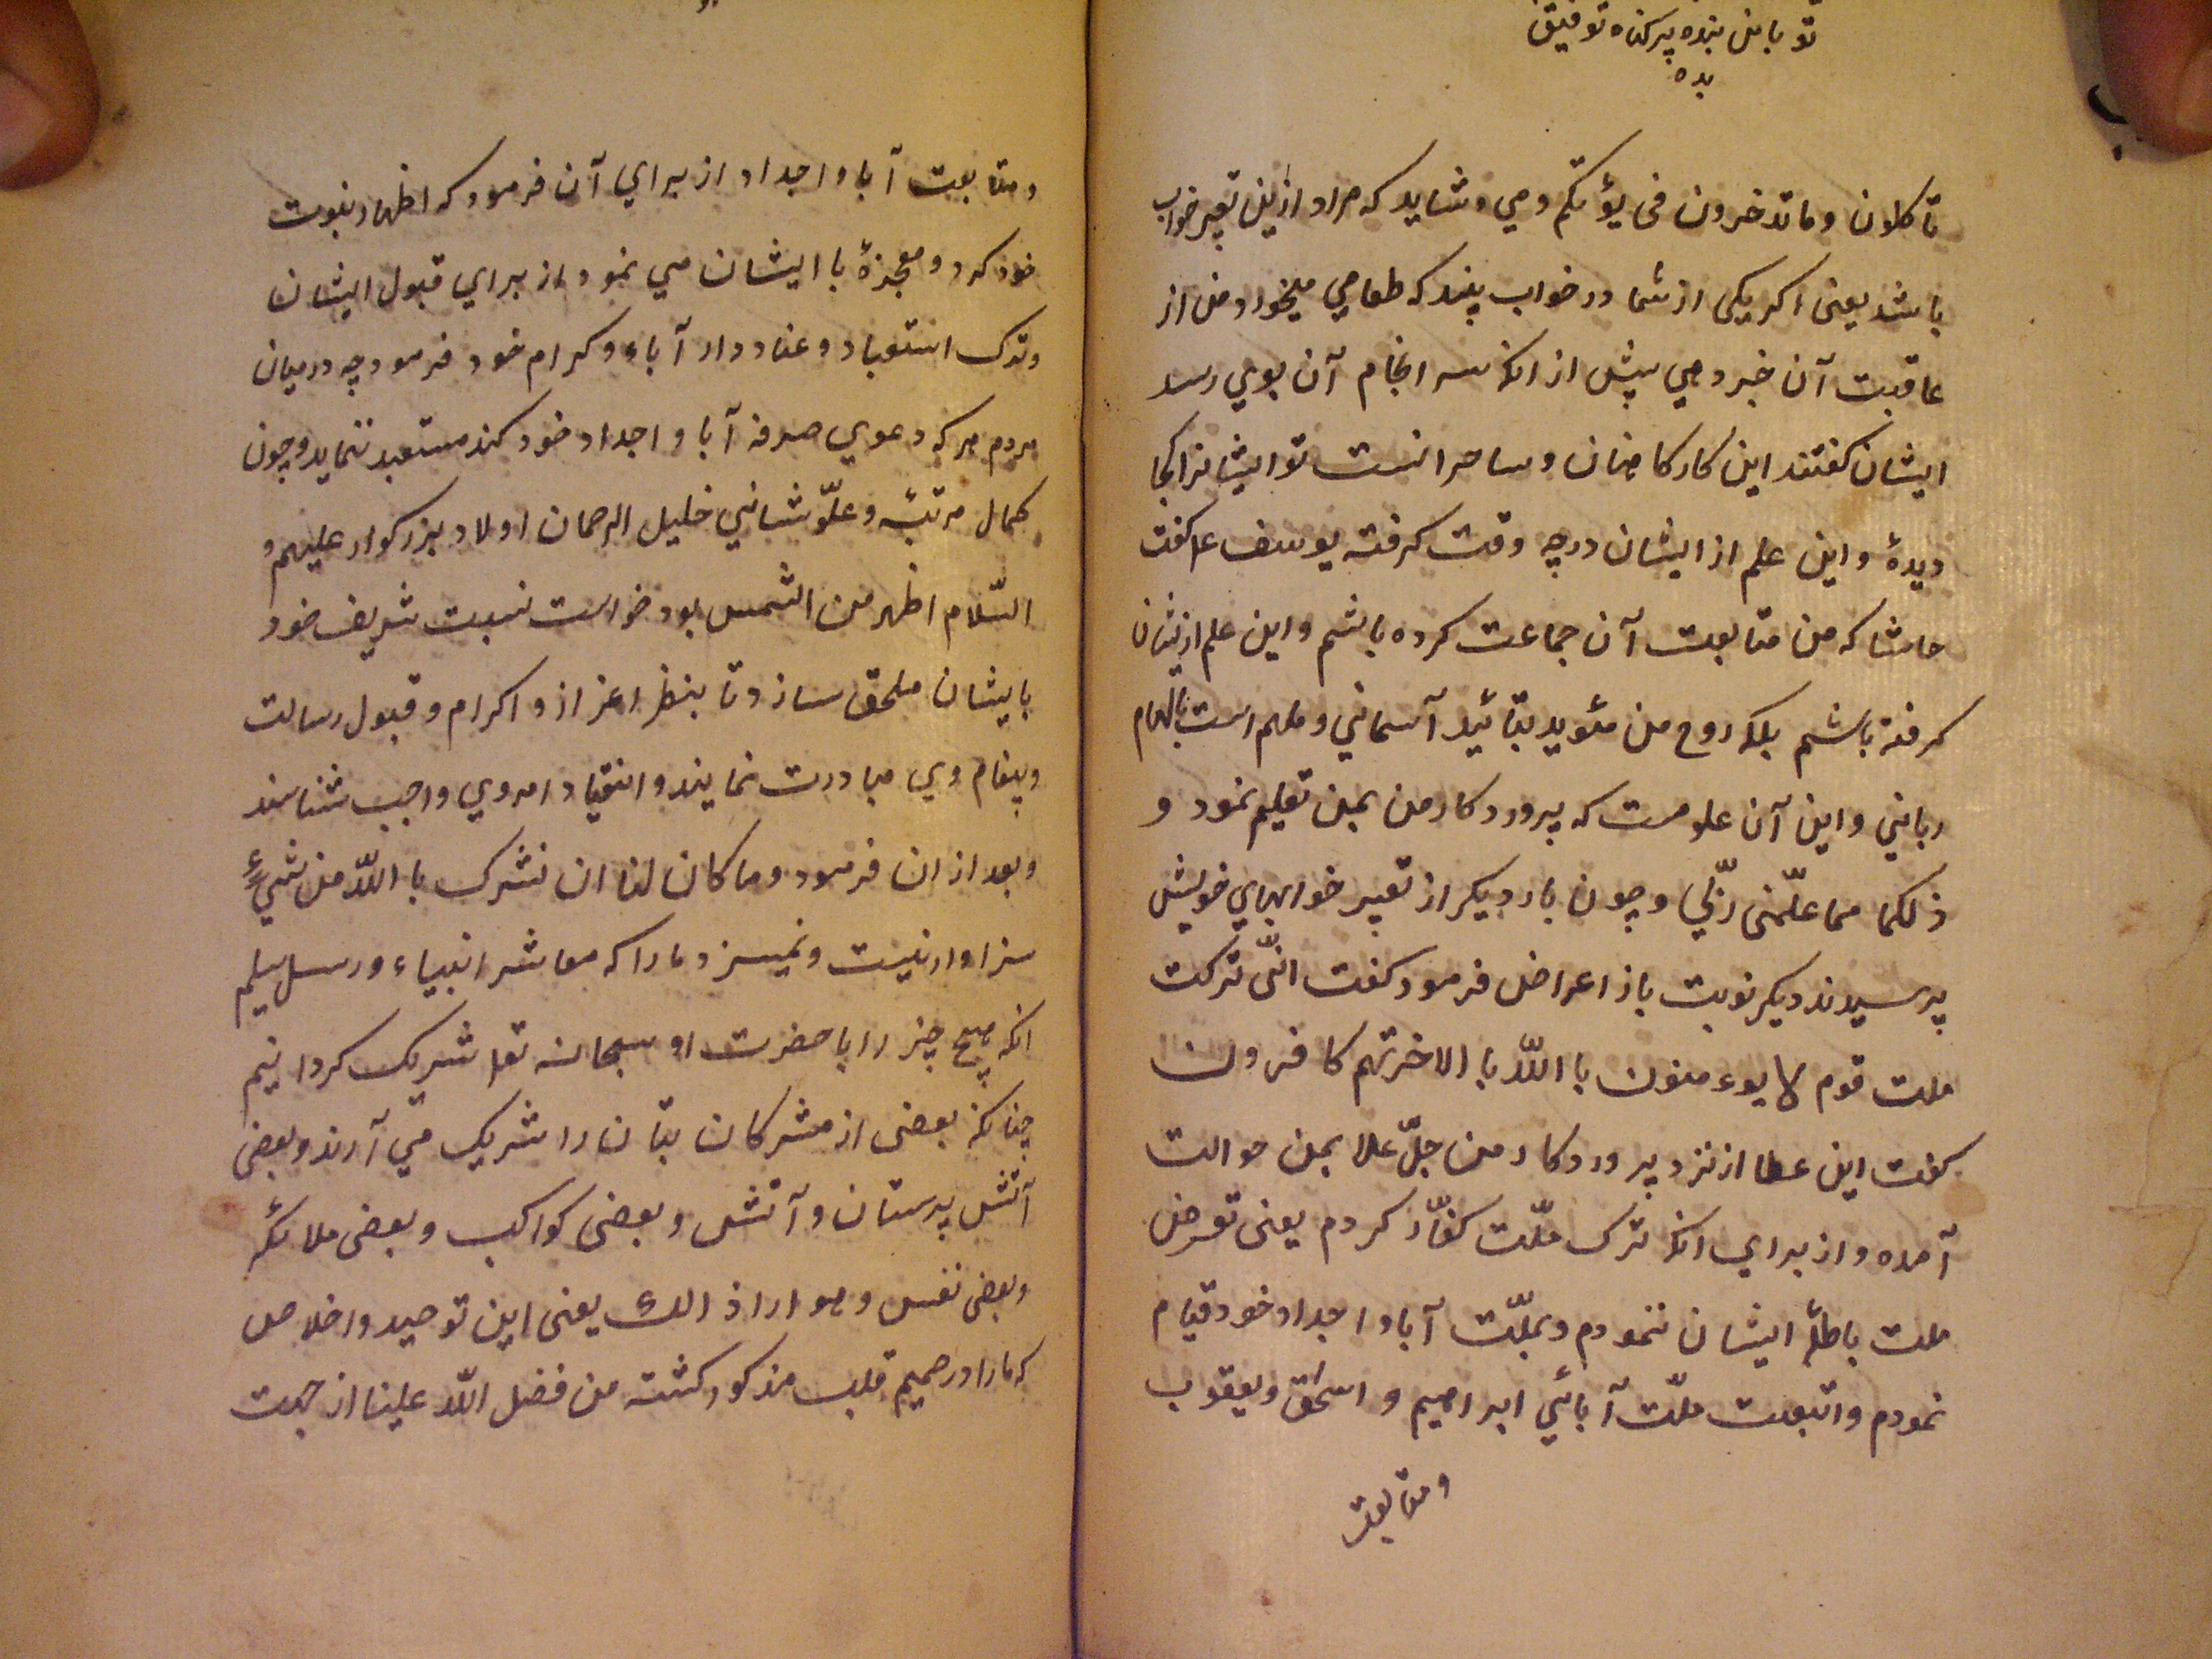 تو باین بنده پرکناه توفیق
بده
تاکلون وما تدخرون فی بیؤتکم ومی وشاید که مراد ازین تعبیر خواب
باشد یعنی اکر یکی از شما در خواب بیند که طعامی میخورد من از
عاقبت آن خبر دمی پیش از انکه سر انجام آن بوی رسد
ایشان کفتند این کار کاهنان وساحرانست تو ایشانرا کجا
دیدۀ واین علم از ایشان درچه وقت کرفته یوسف عم کفت
حاشا که من متابعت آن جماعت کرده باشم واین علم ازیشان
کرفته باشم بلکه روح من مئوید بتائید آسمانی وملهم است بالهام
ربانی واین آن علومست که پروردکار من بمن تعلیم نمود و
ذلکما مما علّمنی ربّی وچون بار دیکر از تعبیر خوابهای خویش
پرسیدند دیکر نوبت باز اعراض فرمود کفت انّی ترکت
ملت قوم لا یوء منون با اللّه با الاخرتهم کافرون
کفت این عطا از نزد پروردکار من جلّ علا بمن حوالت
آمده واز برای انکه ترک ملّت کفّار کردم یعنی تعرض
ملت باطلۀ ایشان ننمودم وبملّت آبا واجداد خود قیام
نمودم واتبعت ملّت آبائی ابراهیم و اسحق ویعقوب
ومتابعت
ومتابعت آبا واجداد از برای آن فرمود که اظهار نبوت
خود کرد ومعجزۀ با ایشان می نمود از برای قبول ایشان
وترک استعباد وعناد دار آباء وکرام خود فرمود چه درمیان
مردم هر که دعوی حرفه آبا و اجداد خود کند مستعبد ننماید وچون
کمال مرتبۀ وعلوّ شانی خلیل الرحمان اولاد بزرکوار علیهم و
السّلام اظهر من الشمس بود خواست نسبت شریف خود
بایشان ملحق سازد تا بنظر اعزاز و اکرام وقبول رسالت
وپیغام وی مبادرت نمایند وانقیاد امر وی واجب شناسند
وبعد ازان فرمود وما کان لنا ان نشرک با اللّه من شیءٍ
سزاوار نیست ونمیسزد مارا که معاشر انبیاء ورسل سلیم
انکه هیچ چیز را با حضرت او سبحانه تعا شریک کردانیم
چنانکه بعضی از مشرکان بتان را شریک می آرند وبعضی
آتش پرستان وآتش وبعضی کواکب وبعضی ملائکه
وبعضی نفس وهوا را ذالك یعنی این توحید واخلاص
که مارا در صمیم قلب مذکور کشته من فضل اللّه علینا از جهت